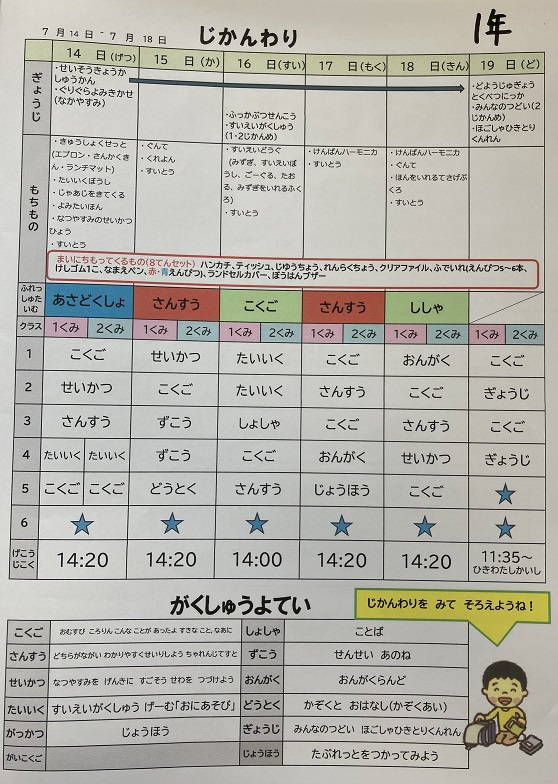 7 月 14 日 - 7 月 18 日 じかんわり 1年
14 日 (げつ) 15 日 (か) 16 日(すい) 17 日(もく) 18 日(きん) 19 日(ど)
ぎょうじ
・せいそうきょうか
しゅうかん
・ぐりぐらよみきかせ
(なかやすみ)
・ふっかぶつせんこう
・すいえいがくしゅう
(1・2じかんめ)
・どようじゅぎょう
とくべつにっか
・みんなのつどい(2
じかんめ)
・ほごしゃひきとり
くんれん
もちもの
・きゅうしょくせっと
(エプロン・さんかくき
ん・ランチマット)
・たいいくぼうし
・じゃあじをきてくる
・よみたいほん
・なつやすみのせいかつ
ひょう
・すいとう
・ぐんて
・くれよん
・すいとう
・すいえいどうぐ
(みずぎ、すいえいぼ
うし、ごーぐる、たお
る、みずぎをいれるふく
ろ)
・すいとう
・けんばんハーモニカ
・すいとう
・けんばんハーモニカ
・ぐんて
・ほんをいれるてさげぶ
くろ
・すいとう
まいにちもってくるもの(8てんセット) ハンカチ、ティッシュ、じゆうちょう、れんらくちょう、クリアファイル、ふでいれ(えんぴつ5~6本、
けしゴム1こ、なまえペン、赤・青えんぴつ)、ランドセルカバー、ぼうはんブザー
ふれっしゅたいむ あさどくしょ さんすう こくご さんすう ししゃ
クラス 1くみ 2くみ 1くみ 2くみ 1くみ 2くみ 1くみ 2くみ 1くみ 2くみ 1くみ 2くみ
1 こくご せいかつ たいいく こくご おんがく こくご
2 せいかつ こくご たいいく さんすう こくご ぎょうじ
3 さんすう ずこう しょしゃ こくご さんすう こくご
4 たいいく たいいく ずこう こくご おんがく せいかつ ぎょうじ
5 こくご こくご どうとく さんすう じょうほう こくご
6
げこうじこく 14:20 14:20 14:00 14:20 14:20 11:35~
ひきわたしかいし
がくしゅうよてい
じかんわりを みて そろえようね!
こくご おむすび ころりん こんな ことが あったよ すきな こと、なあに しょしゃ ことば
さんすう どちらがながい わかりやすくせいりしよう ちゃれんじてすと ずこう せんせい あのね
せいかつ なつやすみを げんきに すごそう せわを つづけよう おんがく おんがくらんど
たいいく すいえいがくしゅう げーむ「おにあそび」 どうとく かぞくと おはなし(かぞくあい)
がっかつ じょうほう ぎょうじ みんなのつどい ほごしゃひきとりくんれん
がいこくご じょうほう たぶれっとをつかってみよう